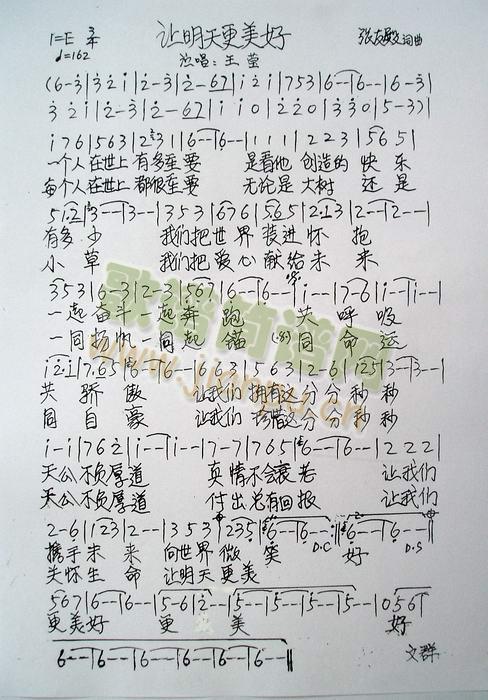 1=E 3/4 让明天更美好 张友殿词曲
♩=162 演唱：王莹
(6-3|3 2 i|2-3|2-67|i 2 i|7 5 3|6--|6--|6-3|
3 2 i|2-3|2-67|i i 0|2 2 0|3 3 0|5-3)|
i 7 6|5 6 3|2 3 1|6--|6--|1 1 1|2 2 3|5 6 5|
一个人在世上 有多重要 是看他 创造的 快 乐
每个人在世上 都很重要 无论是 大树 还 是
5 1 2|3--|3--|3 5 3|6 7 6|5 6 5|2 1 3|2--|2--|
有多 少 我们把 世 界 装进 怀 抱
小 草 我们把 爱 心 献给 未 来
3 5 3|6-3|2-3|5 6 7|6--|6--|i--|7-6|i--|i--|
一起奋斗一起奔 跑 共 呼 吸
一同扬帆一同起 锚 同 命 运
i 2 i|7 6 5|6--|6--|6 6 3|5 6 3|2-6|1 2 5|3--|3--|
共 骄 傲 让我们 拥有这 分分 秒 秒
同 自 豪 让我们 珍惜这 分分 秒 秒
i-i|7 6 2|i--|i--|7-7|7 6 5|6--|6--|2 2 2|
天公 不负厚道 真 情不会衰 老 让我们
天公 不负厚道 付 出总有回 报 让我们
2-6|1 2 3|2--|3 5 3|2 3 5|6--|6--:|6--|6--|
携手 未 来 向世界 微 笑 D.C 好 D.S
关怀 生 命 让明天 更 美
5 6 7|6--|6--|5-6|2--|5--|5--|5--|5--|0 5 6|
更美好 更 美 好
6--|6--|6--|6--|6--|6--‖ 文群
歌谱简谱网
www.jianpu.cn